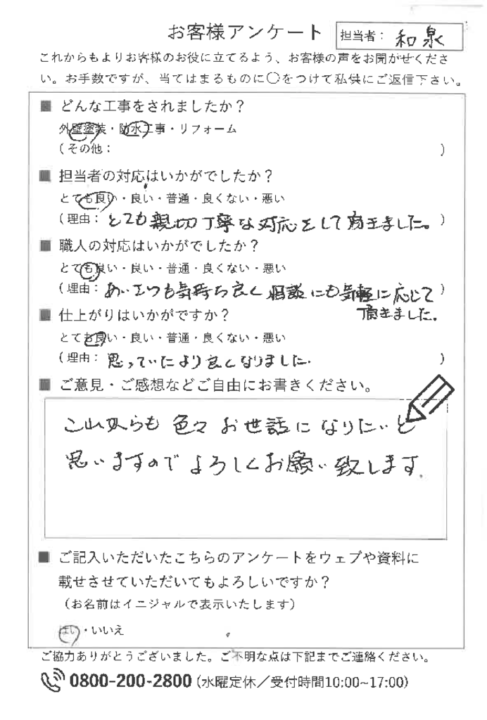 お客様アンケート
担当者： 和泉
これからもよりお客様のお役に立てるよう、お客様の声をお聞かせくださ
い。お手数ですが、当てはまるものに○をつけて私共にご返信下さい。
■ どんな工事をされましたか？
外壁塗装・防水工事・リフォーム
（その他： ）
■ 担当者の対応はいかがでしたか？
とても良い・良い・普通・良くない・悪い
（理由： とても親切丁寧な対応をして頂きました。）
■ 職人の対応はいかがでしたか？
とても良い・良い・普通・良くない・悪い
（理由： あいさつも気持ち良く 相談にも気軽に応じて）
頂きました。
■ 仕上がりはいかがですか？
とても良い・良い・普通・良くない・悪い
（理由： 思っていたより良くなりました。 ）
■ ご意見・ご感想などご自由にお書きください。
これからも 色々 お世話に なりたいと
思いますので よろしくお願い致します。
■ ご記入いただいたこちらのアンケートをウェブや資料に
載せさせていただいてもよろしいですか？
（お名前はイニシャルで表示いたします）
はい・いいえ
ご協力ありがとうございました。ご不明な点は下記までご連絡ください。
0800-200-2800（水曜定休／受付時間10:00~17:00）